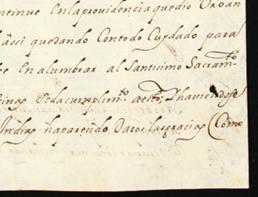 ntinue En la providencia que dio Vrban
assi quedando Con todo Cuydado para
En alumbrar al Santisimo Sacramto
se da cumplimto a esto, I haviendose
Indias ha parecido Daros las gracias (Como